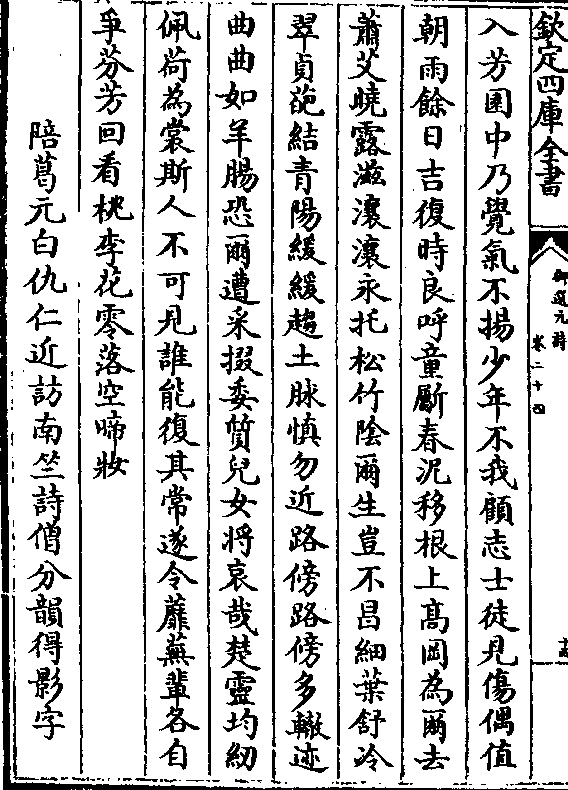 欽定四庫全書
御選元詩
卷二十四
入芳園中乃覺氣不揚少年不我顧志士徒見傷偶值
朝雨餘日吉復時良呼童斸春泥移根上髙岡為爾去
蕭艾曉露滋瀼瀼永托松竹隂爾生豈不昌細葉舒冷
翠貞葩結青陽緩緩趨土脉慎勿近路傍路傍多轍迹
曲曲如羊腸恐爾遭采掇委質兒女將哀哉楚靈均紉
佩荷為裳斯人不可見誰能復其常遂令蘼蕪輩各自
爭芬芳回看桃李花零落空啼妝
陪葛元白仇仁近訪南竺詩僧分韻得影字